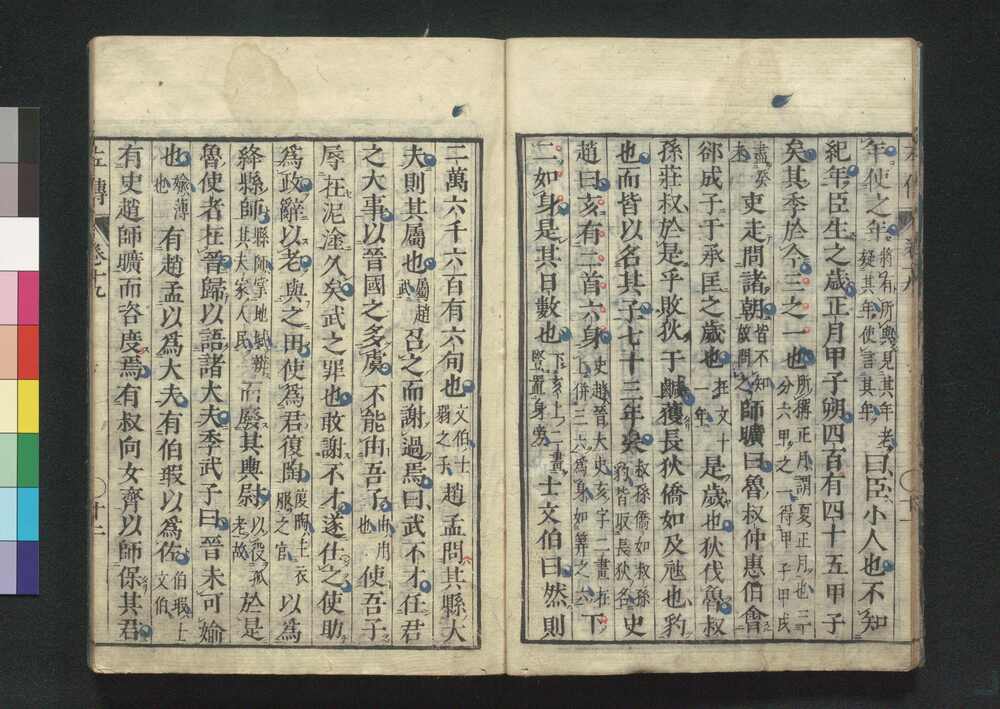 年使之年將有所與見其年老疑其年使言其年曰臣小人也不知
紀年臣生之歲正月甲子朔四百有四十五甲子
矣其季於今三之一也所稱正月謂夏正月也三分六甲之一得甲子甲戌
盡癸未吏走問諸朝皆不知故問之師曠曰魯叔仲惠伯會
郤成子于承匡之歲也在文十一年是歲也狄伐魯叔
孫莊叔於是乎敗狄于鹹獲長狄僑如及虺也豹
也而皆以名其子七十三年矣叔孫僑如叔孫豹皆取長狄名史
趙曰亥有二首六身史趙晉大史亥字二畫在上併三六為身如算之六下
二如身是其日數也下亥上二畫豎置身旁士文伯曰然則
二萬六千六百有六旬也文伯士弱之子趙孟問其縣大
夫則其屬也屬趙武召之而謝過焉曰武不才任君
之大事以晉國之多虞不能由吾子由用也使吾子
辱在泥塗久矣武之罪也敢謝不才遂仕之使助
為政辭以老與之田使為君復陶復陶主衣服之官以為
絳縣師縣師掌地域辨其夫家人民而廢其輿尉以役孤老故於是
魯使者在晉歸以語諸大夫季武子曰晉未可媮
也媮薄也有趙孟以為大夫有伯瑕以為佐伯瑕士文伯
有史趙師曠而咨度焉有叔向女齊以師保其君
左傳
卷十九
十二